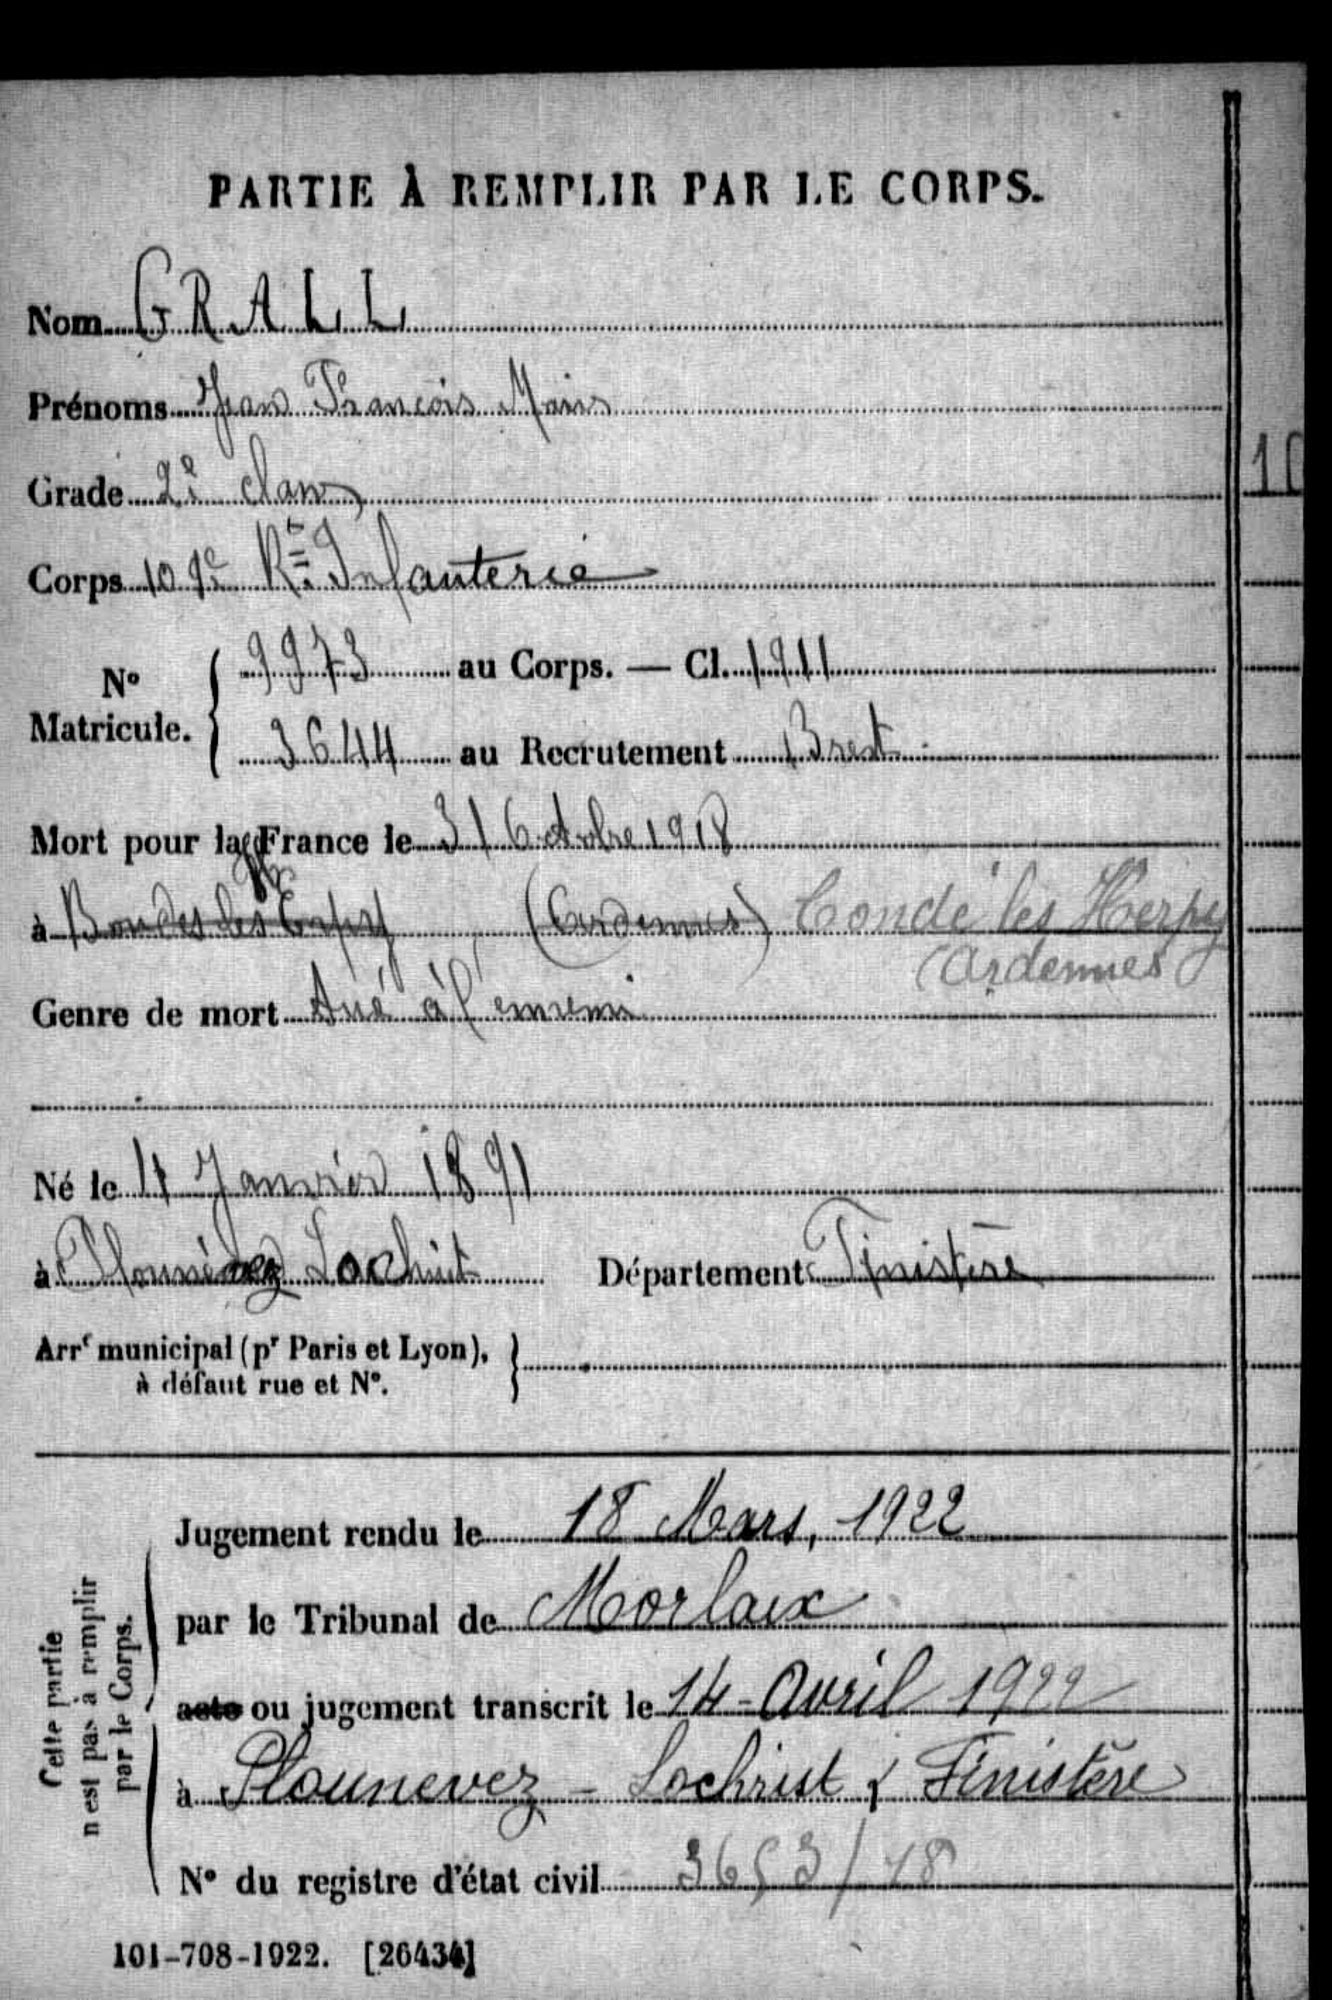 PARTIE À REMPLIR PAR LE CORPS.
Nom GRALL
Prénoms Jean François Marie
Grade 2e classe
Corps 109e Rt Infanterie
No Matricule. { 9973 au Corps. — Cl. 1911
3644 au Recrutement Brest
Mort pour la France le 31 Octobre 1918
à (Ardennes) Condé les Herpy
(Ardennes
Genre de mort Tué à l'ennemi
Né le 11 Janvier 1891
à Plounévez Lochrist Département Finistère
Arrt municipal (pr Paris et Lyon), à défaut rue et No. }
Cette partie n'est pas à remplir par le Corps.
Jugement rendu le 18 Mars, 1922
par le Tribunal de Morlaix
acte ou jugement transcrit le 14 - Avril 1922
à Plounevez - Lochrist, Finistère
No du registre d'état civil 3653/18
101-708-1922. [26434]
10